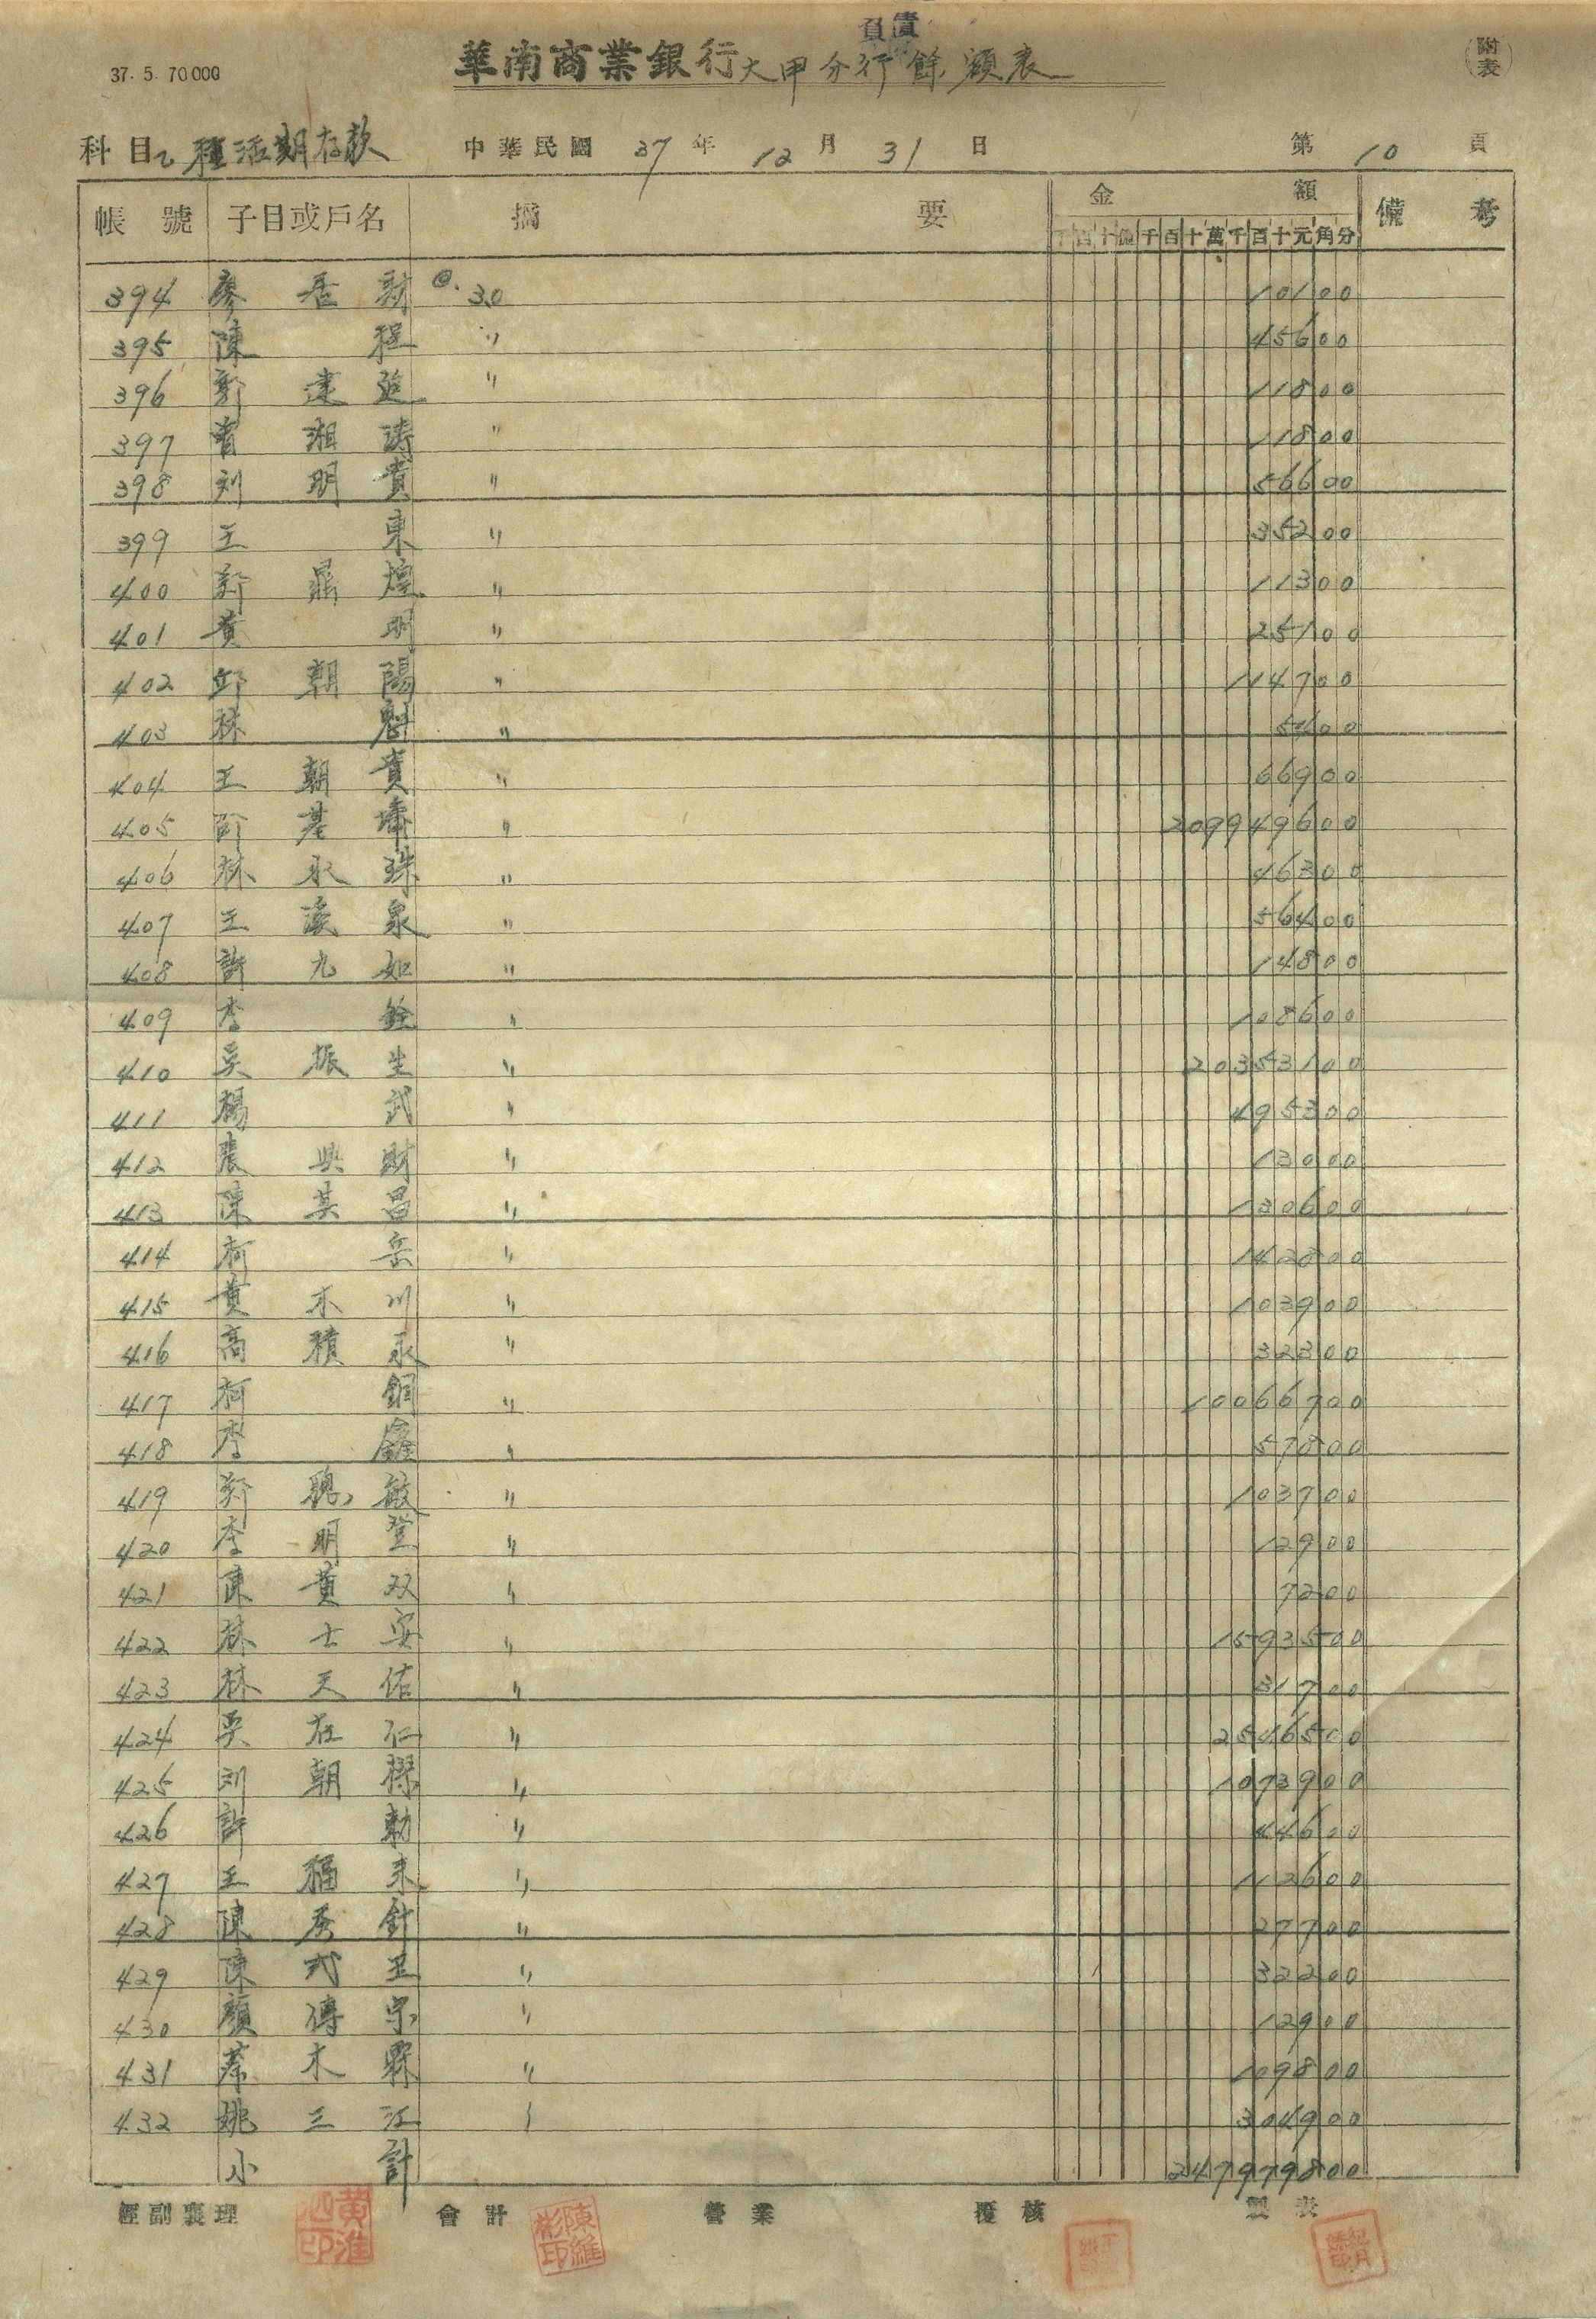 負債
37. 5. 70000
華南商業銀行大甲分行餘額表
附表
科目 乙種活期存款 中華民國 37 年 12 月 31 日 第 10 頁
帳號 子目或戶名 摘要 金額 備考
千百十億千百十萬千百十元角分
394 廖居財 @. 3.0 10100
395 陳程 〃 45600
396 郭建 〃 11800
397 湘濤 〃 11800
398 刘明貴 〃 56600
399 王東 〃 35200
400 鼎煌 〃 11300
401 黃明 〃 25100
402 邱朝陽 〃 114700
403 林魁 〃 5400
404 王朝貴 〃 66900
405 基 〃 209949600
406 林永珠 〃 46300
407 王溪泉 〃 56400
408 許九如 〃 14800
409 李銓 〃 108600
410 吳振生 〃 20353100
411 楊武 〃 495300
412 興財 〃 13000
413 陳其昌 〃 130600
414 柯岳 〃 142000
415 黃木川 〃 103900
416 高積永 〃 32300
417 柯銅 〃 10066700
418 李 〃 57000
419 聰敏 〃 103700
420 李明登 〃 12900
421 陳黃双 〃 7200
422 林士安 〃 1593500
423 林天佑 〃 31700
424 吳在仁 〃 2546500
425 刘朝 〃 1073900
426 許勅 〃 44600
427 王福來 〃 112600
428 陳秀針 〃 27700
429 陳式玉 〃 32200
430 顏傳宗 〃 12900
431 木 〃 109800
432 姚三江 〃 304900
小計 247979800
經副襄理 會計 營業 覆核 製表
黃淮泗印
陳維彬印